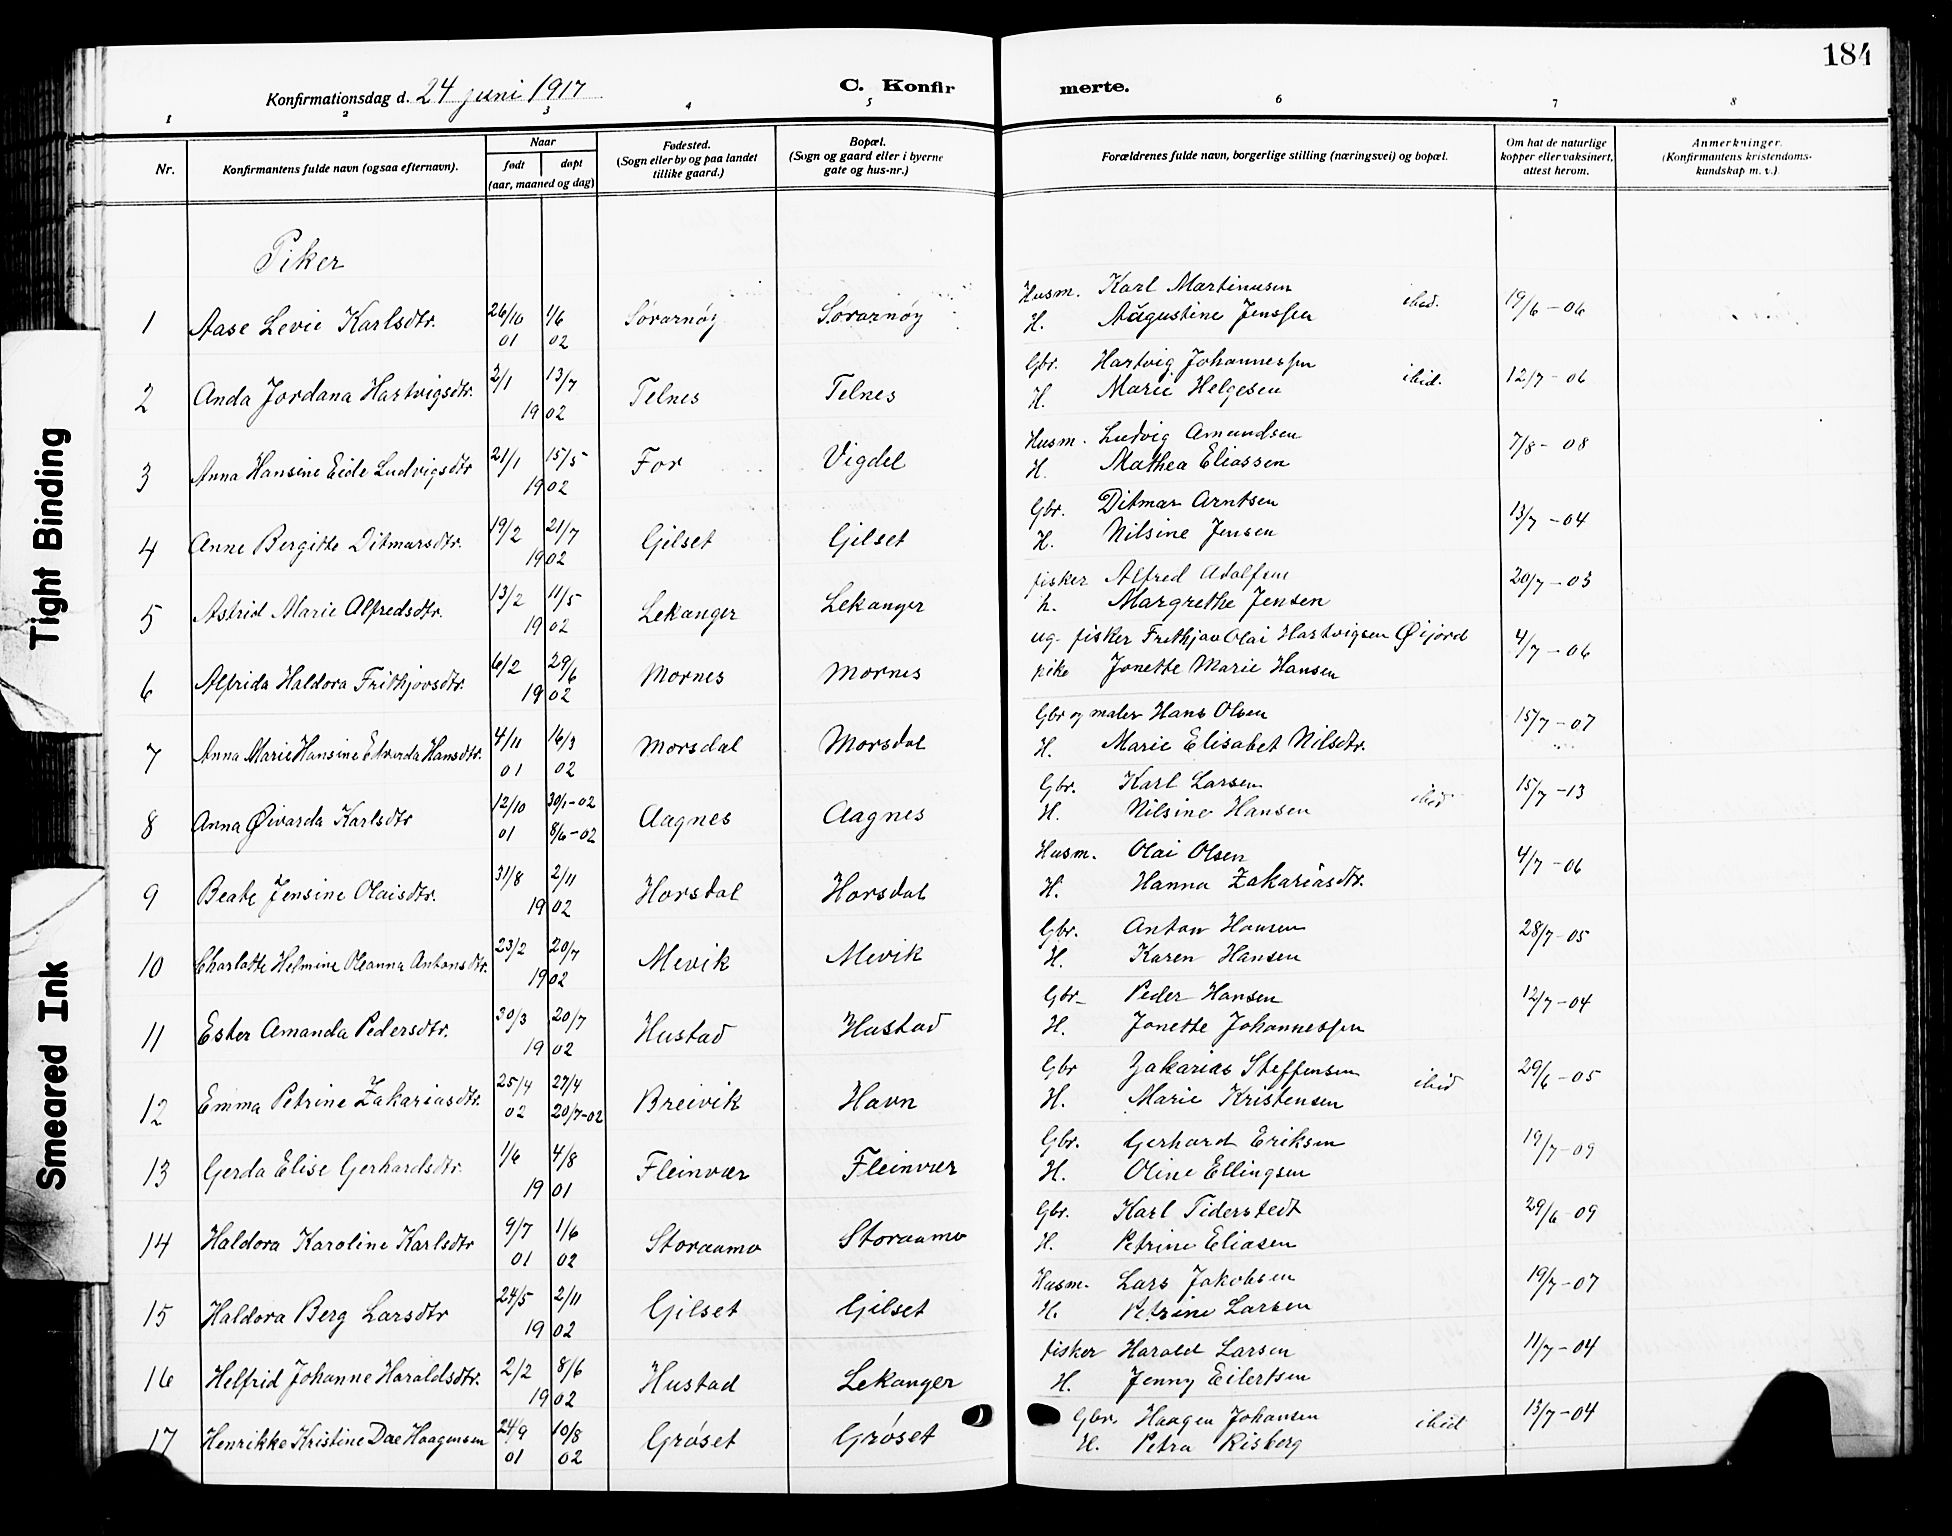 184
Konfirmationsdag d. 24 juni 1917
C. Konfir merte.
1 2 3 4 5 6 7 8
Nr.
Konfirmantens fulde navn (ogsaa efternavn).
Naar
født døpt
(aar, maaned og dag)
Fødested.
(Sogn eller by og paa landet
tillike gaard.)
Bopæl.
(Sogn og gaard eller i byerne
gate og hus-nr.)
Forældrenes fulde navn, borgerlige stilling (næringsvei) og bopæl.
Om hat de naturlige
kopper eller vaksinert,
attest herom.
Anmerkninger.
(Konfirmantens kristendoms-
kundskap m. v.).
Piker
1 Aase Levie Karlsdtr. 26/10 01 1/6 02 Sørarnøy Sørarnøy Husm. Karl Martinusen ibid. 19/6 - 06
H. Augustine Jenssen
2 Anda Jordana Hartvigsdtr. 2/1 13/7 1902 Telnes Telnes Gbr. Hartvig Johannessen ibid. 12/7 - 06
H. Marie Helgesen
3 Anna Hansine Eide Ludvigsdtr 21/1 15/5 1902 For Vigdel Husm. Ludvig Amundsen 7/8 - 08
H. Mathea Eliassen
4 Anne Bergitte Ditmarsdtr. 19/2 21/7 1902 Gilset Gilset Gbr. Ditmar Arntsen 13/7 - 04
H. Nilsine Jensen
5 Astrid Marie Alfredsdtr. 13/2 11/5 1902 Lekanger Lekanger fisker Alfred Adolfsen 20/7 - 03
h. Margrethe Jensen
6 Alfrida Haldora Frithjovsdtr. 6/2 29/6 1902 Mornes Mornes ug. fisker Frithjav Olai Hartvigsen Øijord 4/7 - 06
pike Jonette Marie Hansen
7 Anna Marie Hansine Edvarda Hansdtr. 4/11 01 16/3 02 Morsdal Morsdal Gbr og maler Hans Olsen 15/7 - 07
H. Marie Elisabet Nilsdtr.
8 Anna Øivarda Karlsdtr 12/10 01 30/1-02 8/6-02 Aagnes Aagnes Gbr. Karl Larsen ibid 15/7 - 13
H. Nilsine Hansen
9 Beate Jensine Olaisdtr. 31/8 2/11 1902 Horsdal Horsdal Husm. Olai Olsen 4/7 - 06
H. Hanna Zakariasdtr.
10 Charlotte Helmine Oleanna Antonsdtr. 23/2 20/7 1902 Mevik Mevik Gbr. Anton Hansen 28/7 - 05
H. Karen Hansen
11 Ester Amanda Pedersdtr. 30/3 20/7 1902 Hustad Hustad Gbr- Peder Hansen 12/7 - 04
H. Jonette Johannessen
12 Emma Petrine Zakariasdtr. 25/4 02 27/4 20/7-02 Breivik Havn Gbr Zakarias Steffensen ibid 29/6 - 05
H. Marie Kristensen
13 Gerda Elise Gerhardsdtr. 1/6 4/8 1901 Fleinvær Fleinvær Gbr. Gerhard Eriksen 19/7 - 09
H. Oline Ellingsen
14 Haldora Karoline Karlsdtr 9/7 01 1/6 02 Storaamo Storaamo Gbr. Karl Tiderstedt 29/6 - 09
H. Petrine Eliasen
15 Haldora Berg Larsdtr 24/5 2/11 1902 Gilset Gilset Husm. Lars Jakobsen 19/7 - 07
H. Petrine Larsen
16 Helfrid Johanne Haraldsdtr. 2/2 8/6 1902 Hustad Lekanger fisker Harald Larsen 11/7 - 04
H. Jenny Eilertsen
17 Henrikke Kristine Dae Haagensen 24/9 01 10/8 02 Grøset Grøset Gbr. Haagen Johansen ibid 13/7 - 04
H. Petra Risberg
Tight Binding
Smeared Ink